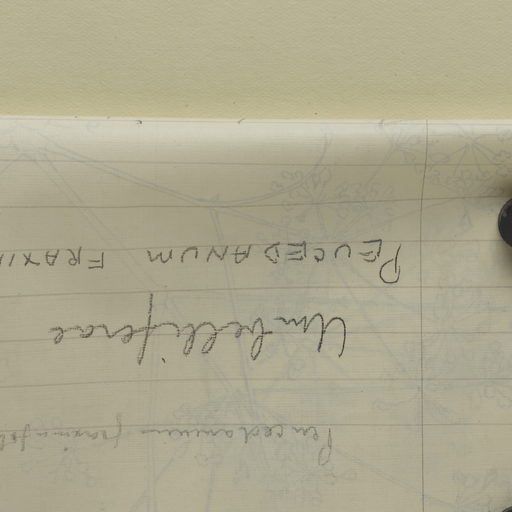 Peucedanum fraxinifol
Umbelliferae
PEUCEDANUM FRAXIN